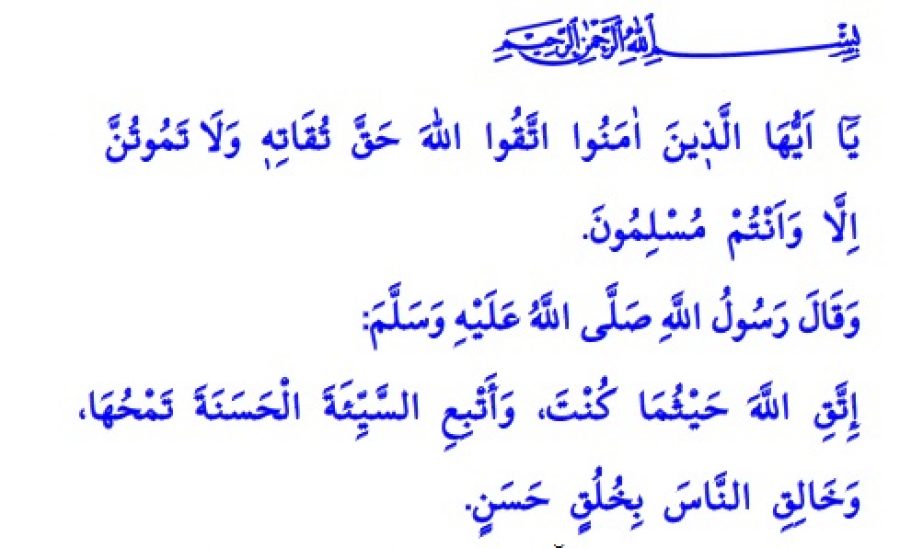 بِسْمِ اللهِ الرَّحْمٰنِ الرَّحِيمِ
يَٓا اَيُّهَا الَّذ۪ينَ اٰمَنُوا اتَّقُوا اللهَ حَقَّ تُقَاتِه۪ وَلَا تَمُوتُنَّ
اِلَّا وَاَنْتُمْ مُسْلِمُونَ.
وَقَالَ رَسُولُ اللَّهِ صَلَّى اللَّهُ عَلَيْهِ وَسَلَّمَ:
إِتَّقِ اللَّهَ حَيْثُمَا كُنْتَ، وَأَتْبِعِ السَّيِّئَةَ الْحَسَنَةَ تَمْحُهَا،
وَخَالِقِ النَّاسَ بِخُلُقٍ حَسَنٍ.